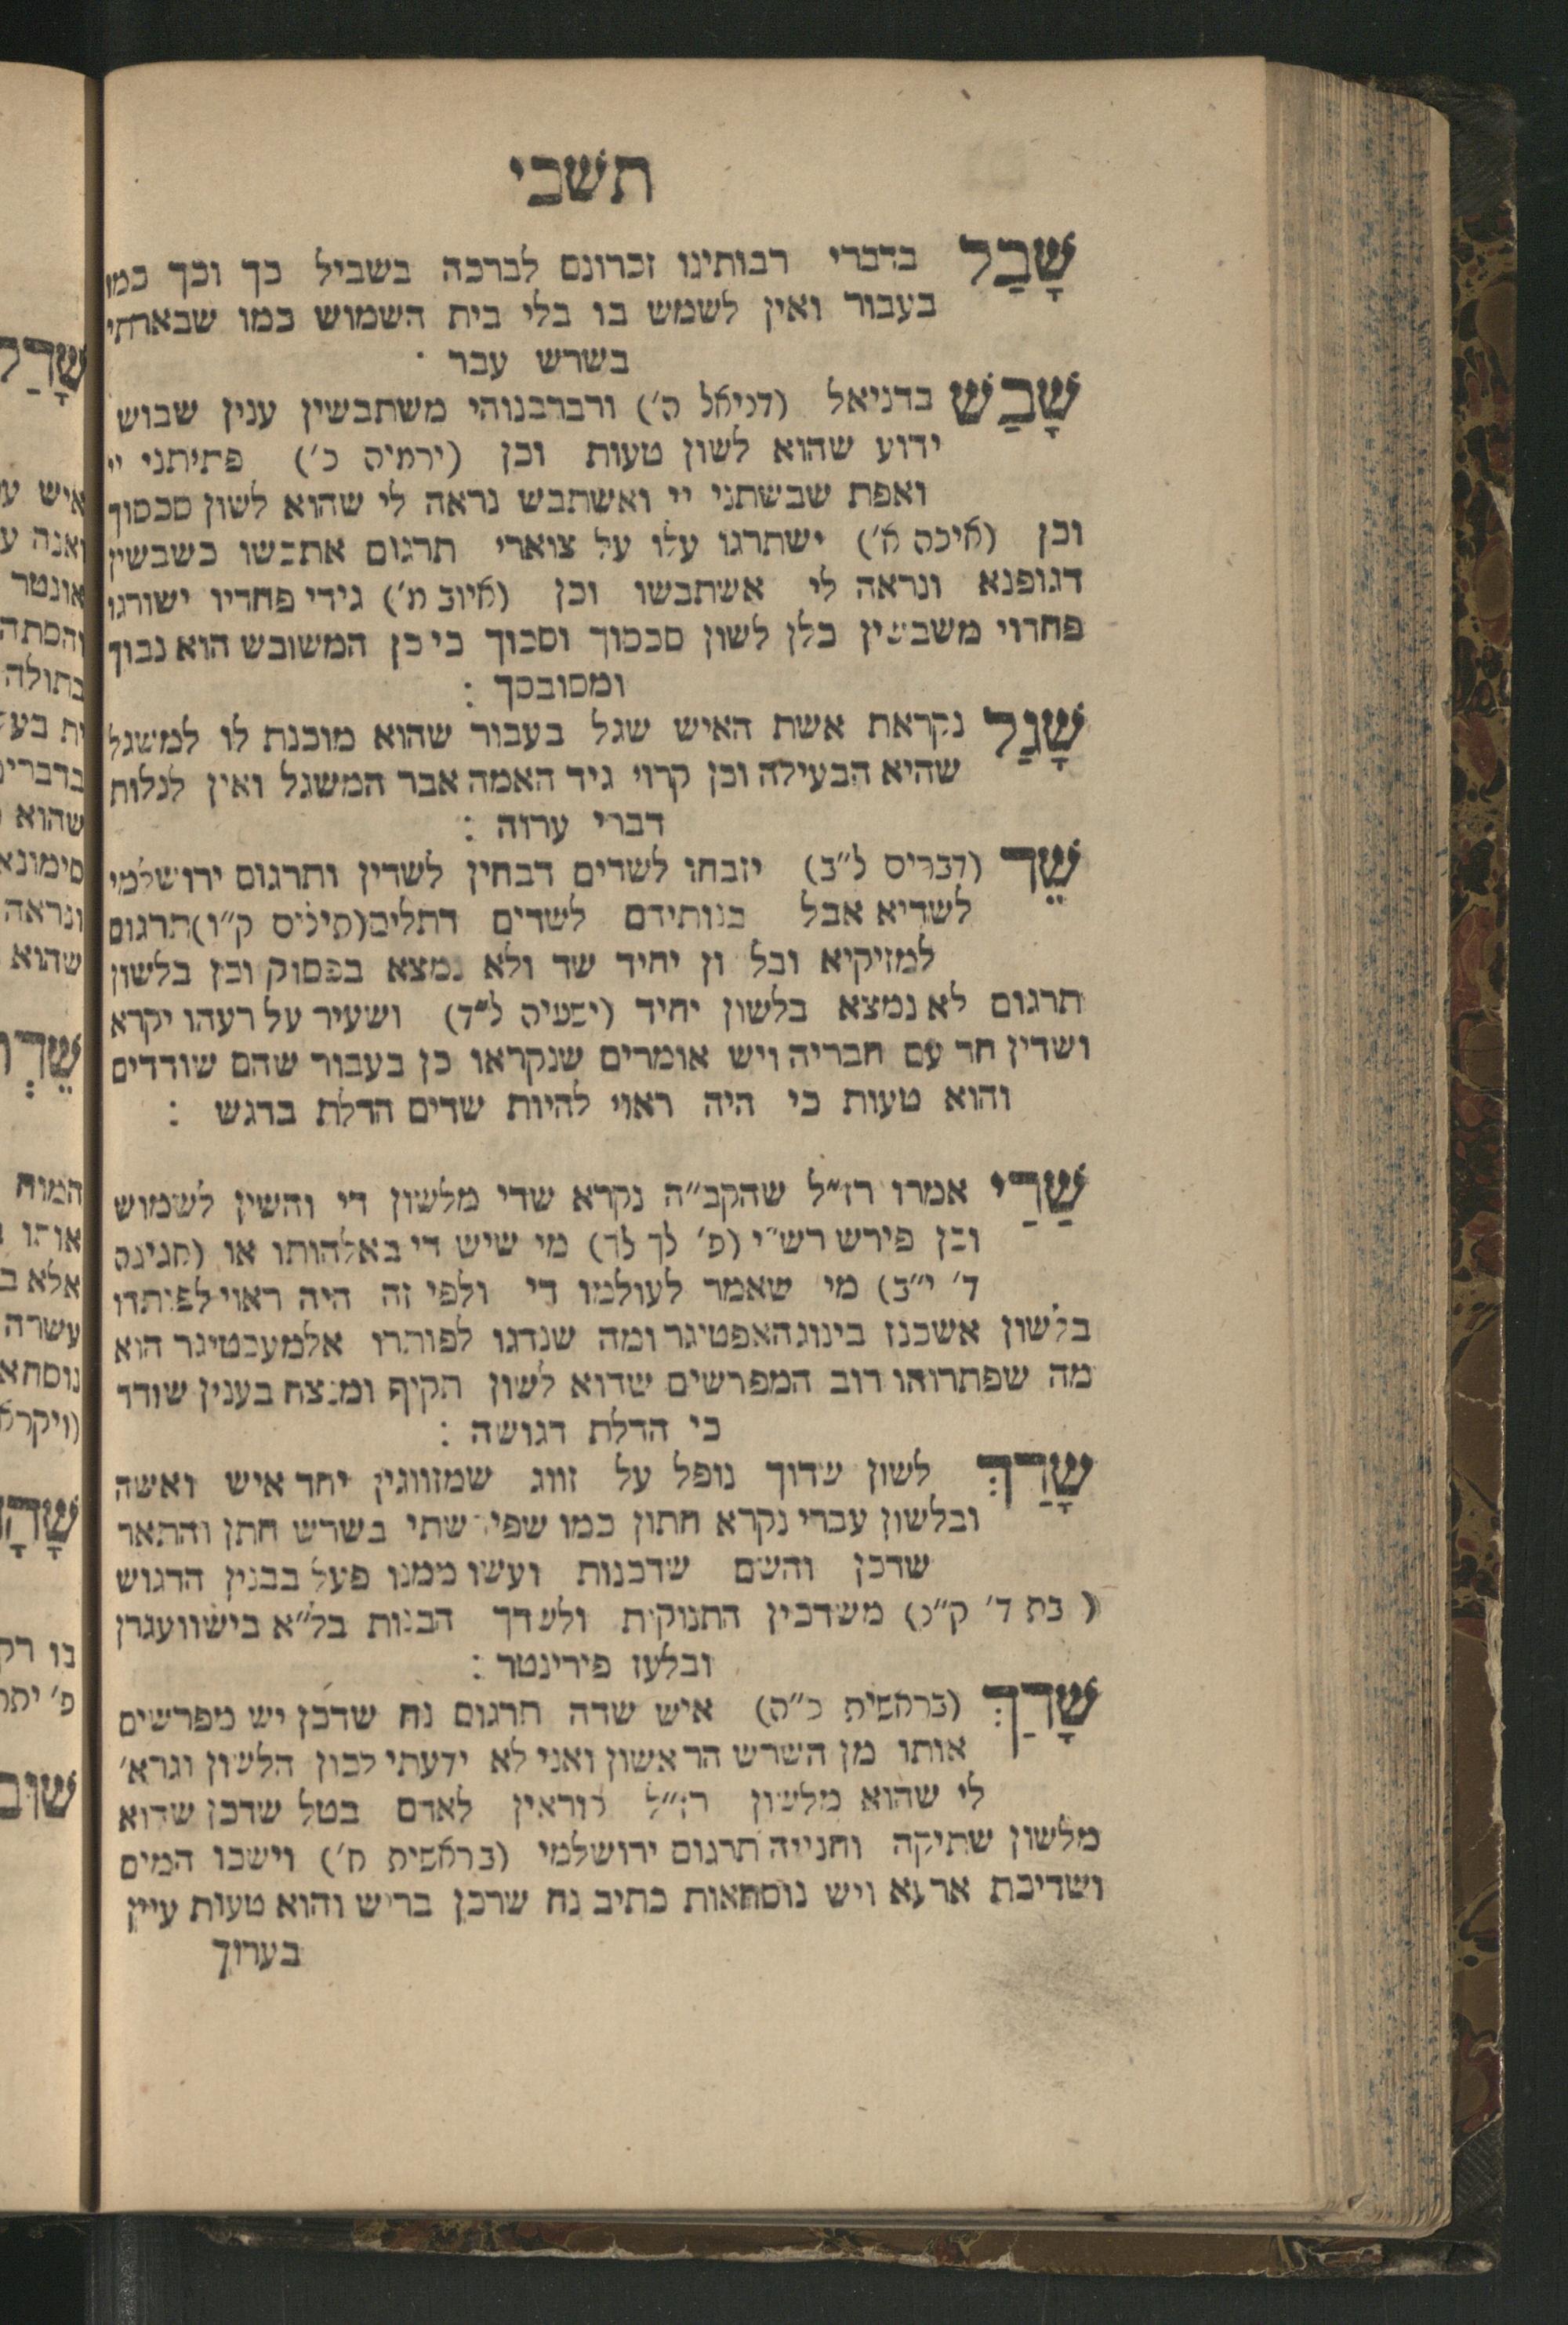 תשבי
שָׁבַל בדברי רבותינו זכרונם לברכה בשביל כך וכך כמו
בעבור ואין לשמש בו בלי בית השמוש כמו שבארתי
בשרש עבר :
שָׁבַשׁ בדניאל (דניאל ה') ורברבנוהי משתבשין ענין שבוש
ידוע שהוא לשון טעות וכן (ירמיה כ') פתיתני יי
ואפת שבשתני יי ואשתבש נראה לי שהוא לשון סכסוך
וכן (איכה א') ישתרגו עלו על צוארי תרגום אתבשו כשבשין
דגופנא ונראה לי אשתבשו וכן (איוב מ') גידי פחדיו ישורגו
פחדוי משבשין כלן לשון סכסוך וסבוך כי כן המשובש הוא נבוך
ומסובסך :
שָׁגַל נקראת אשת האיש שגל בעבור שהוא מוכנת לו למשגל
שהיא הבעילה וכן קרוי גיד האמה אבר המשגל ואין לגלות
דברי ערוה :
שֵׁד (דברים ל"ב) יזבחו לשדים דבחין לשדין ותרגום ירושלמי
לשדיא אבל בנותידם לשדים דתלים (תילים ק"ו) תרגום
למזיקיא וכל ון יחיד שד ולא נמצא בפסוק וכן בלשון
תרגום לא נמצא בלשון יחיד (ישעיה ל"ד) ושעיר על רעהו יקרא
ושדין חד עם חבריה ויש אומרים שנקראו כן בעבור שהם שודדים
והוא טעות כי היה ראוי להיות שדים הדלת בדגש :
שַׁדַי אמרו רז"ל שהקב"ה נקרא שדי מלשון די והשין לשמוש
וכן פירש רש"י (פ' לך לך) מי שיש די באלהותו או (חגיגה
ד' י"ב) מי שאמר לעולמו די ולפי זה היה ראוי לפותרו
בלשון אשכנז בינוגהאפטיגר ומה שנהגו לפותרו אלמעכטיגר הוא
מה שפתרוהו רוב המפרשים שדוא לשון תקיף ומנצח בענין שודד
כי הדלת דגושה :
שָׁדַךְ לשון שדוך נופל על זווג שמזווגין יחד איש ואשה
ובלשון עברי נקרא חתון כמו שפירשתי בשרש חתן והתאר
שדכן והשם שדכנות ועשו ממנו פעל בבנין הדגוש
( בת ד' ק"נ) משדכין התנוקות ולשדך הבנות בל"א בישוועגרן
ובלעז פירינטר :
שָׁדַךְ (בראשית כ"ה) איש שדה תרגום נח שדכן יש מפרשים
אותו מן השרש הראשון ואני לא ידעתי לכון הלשון ונרא'
לי שהוא מלשון רז"ל קוראין לאדם בטל שדכן שדוא
מלשון שתיקה וחנייה תרגום ירושלמי (בראשית ח') וישכו המים
ושדיכת ארעא ויש נוסחאות כתיב נח שרכן בריש והוא טעות עיין
בערוך